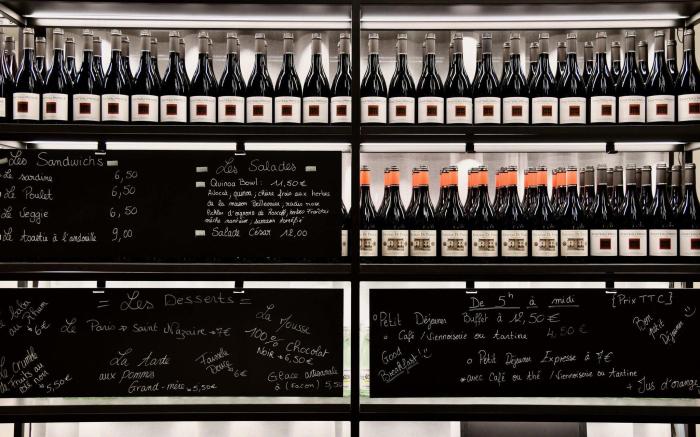 Les Sandwichs
Le sardine 6,50
Le Poulet 6,50
Le Veggie 6,50
Le toastie à l'andouille 9,00
Les Salades
Quinoa Bowl : 11,50€
Avocat, quinoa, chèvre frais aux herbes
de la maison Bellevaire, radis rose
Pickles d'oignons de Roscoff, herbes fraîches
sarrasin torréfié
Salade César 12,00
= Les Desserts =
au Rhum
6€
Le Paris → Saint Nazaire → 7€
La Mousse
100% Chocolat
Noir → 6,50€
Le Crumble
5,50€
La Tarte
aux pommes
Grand-mère → 5,50€
Faisselle
6€
Glace artisanale
à (Facon) 5,50€
De 5h à midi
{Prix TTC}
Petit Déjeuner Buffet à 12,50€
Café / Viennoiserie ou tartine 4,50€
Bon petit Déjeuner
Good
Breakfast!
Petit Déjeuner Expresse à 7€
avec Café ou thé / Viennoiserie ou Tartine
+ Jus d'orange